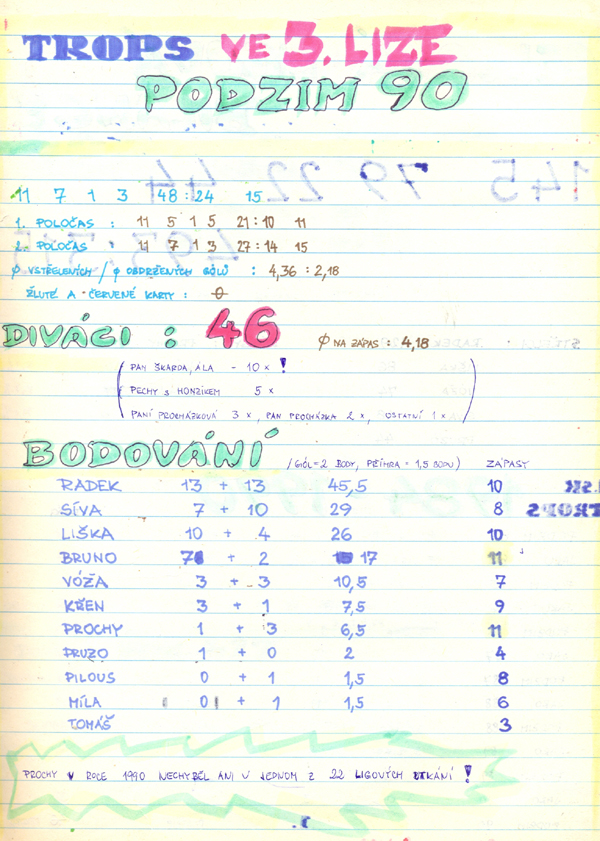 TROPS VE 3. LIZE
PODZIM 90
11 7 1 3 48:24 15
1. POLOČAS : 11 5 1 5 21:10 11
2. POLOČAS : 11 7 1 3 27:14 15
φ VSTŘELENÝCH / φ OBDRŽENÝCH GÓLŮ : 4,36 : 2,18
ŽLUTÉ A ČERVENÉ KARTY : 0
DIVÁCI : 46 φ NA ZÁPAS : 4,18
PAN ŠKARDA, ÁLA - 10 x !
PECHY S HONZÍKEM 5 x
PANÍ PROCHÁZKOVÁ 3 x, PAN PROCHÁZKA 2 x, OSTATNÍ 1 x
BODOVÁNÍ /GÓL = 2 BODY, PŘIHRA = 1,5 BODU) ZÁPASY
RADEK 13 + 13 45,5 10
SÍVA 7 + 10 29 8
LIŠKA 10 + 4 26 10
BRUNO 7 + 2 17 11
VÓŽA 3 + 3 10,5 7
KŘEN 3 + 1 7,5 9
PROCHY 1 + 3 6,5 11
PRUZO 1 + 0 2 4
PILOUS 0 + 1 1,5 8
MÍLA 0 + 1 1,5 6
TOMÁŠ 3
PROCHY V ROCE 1990 NECHYBĚL ANI V JEDNOM Z 22 LIGOVÝCH UTKÁNÍ !